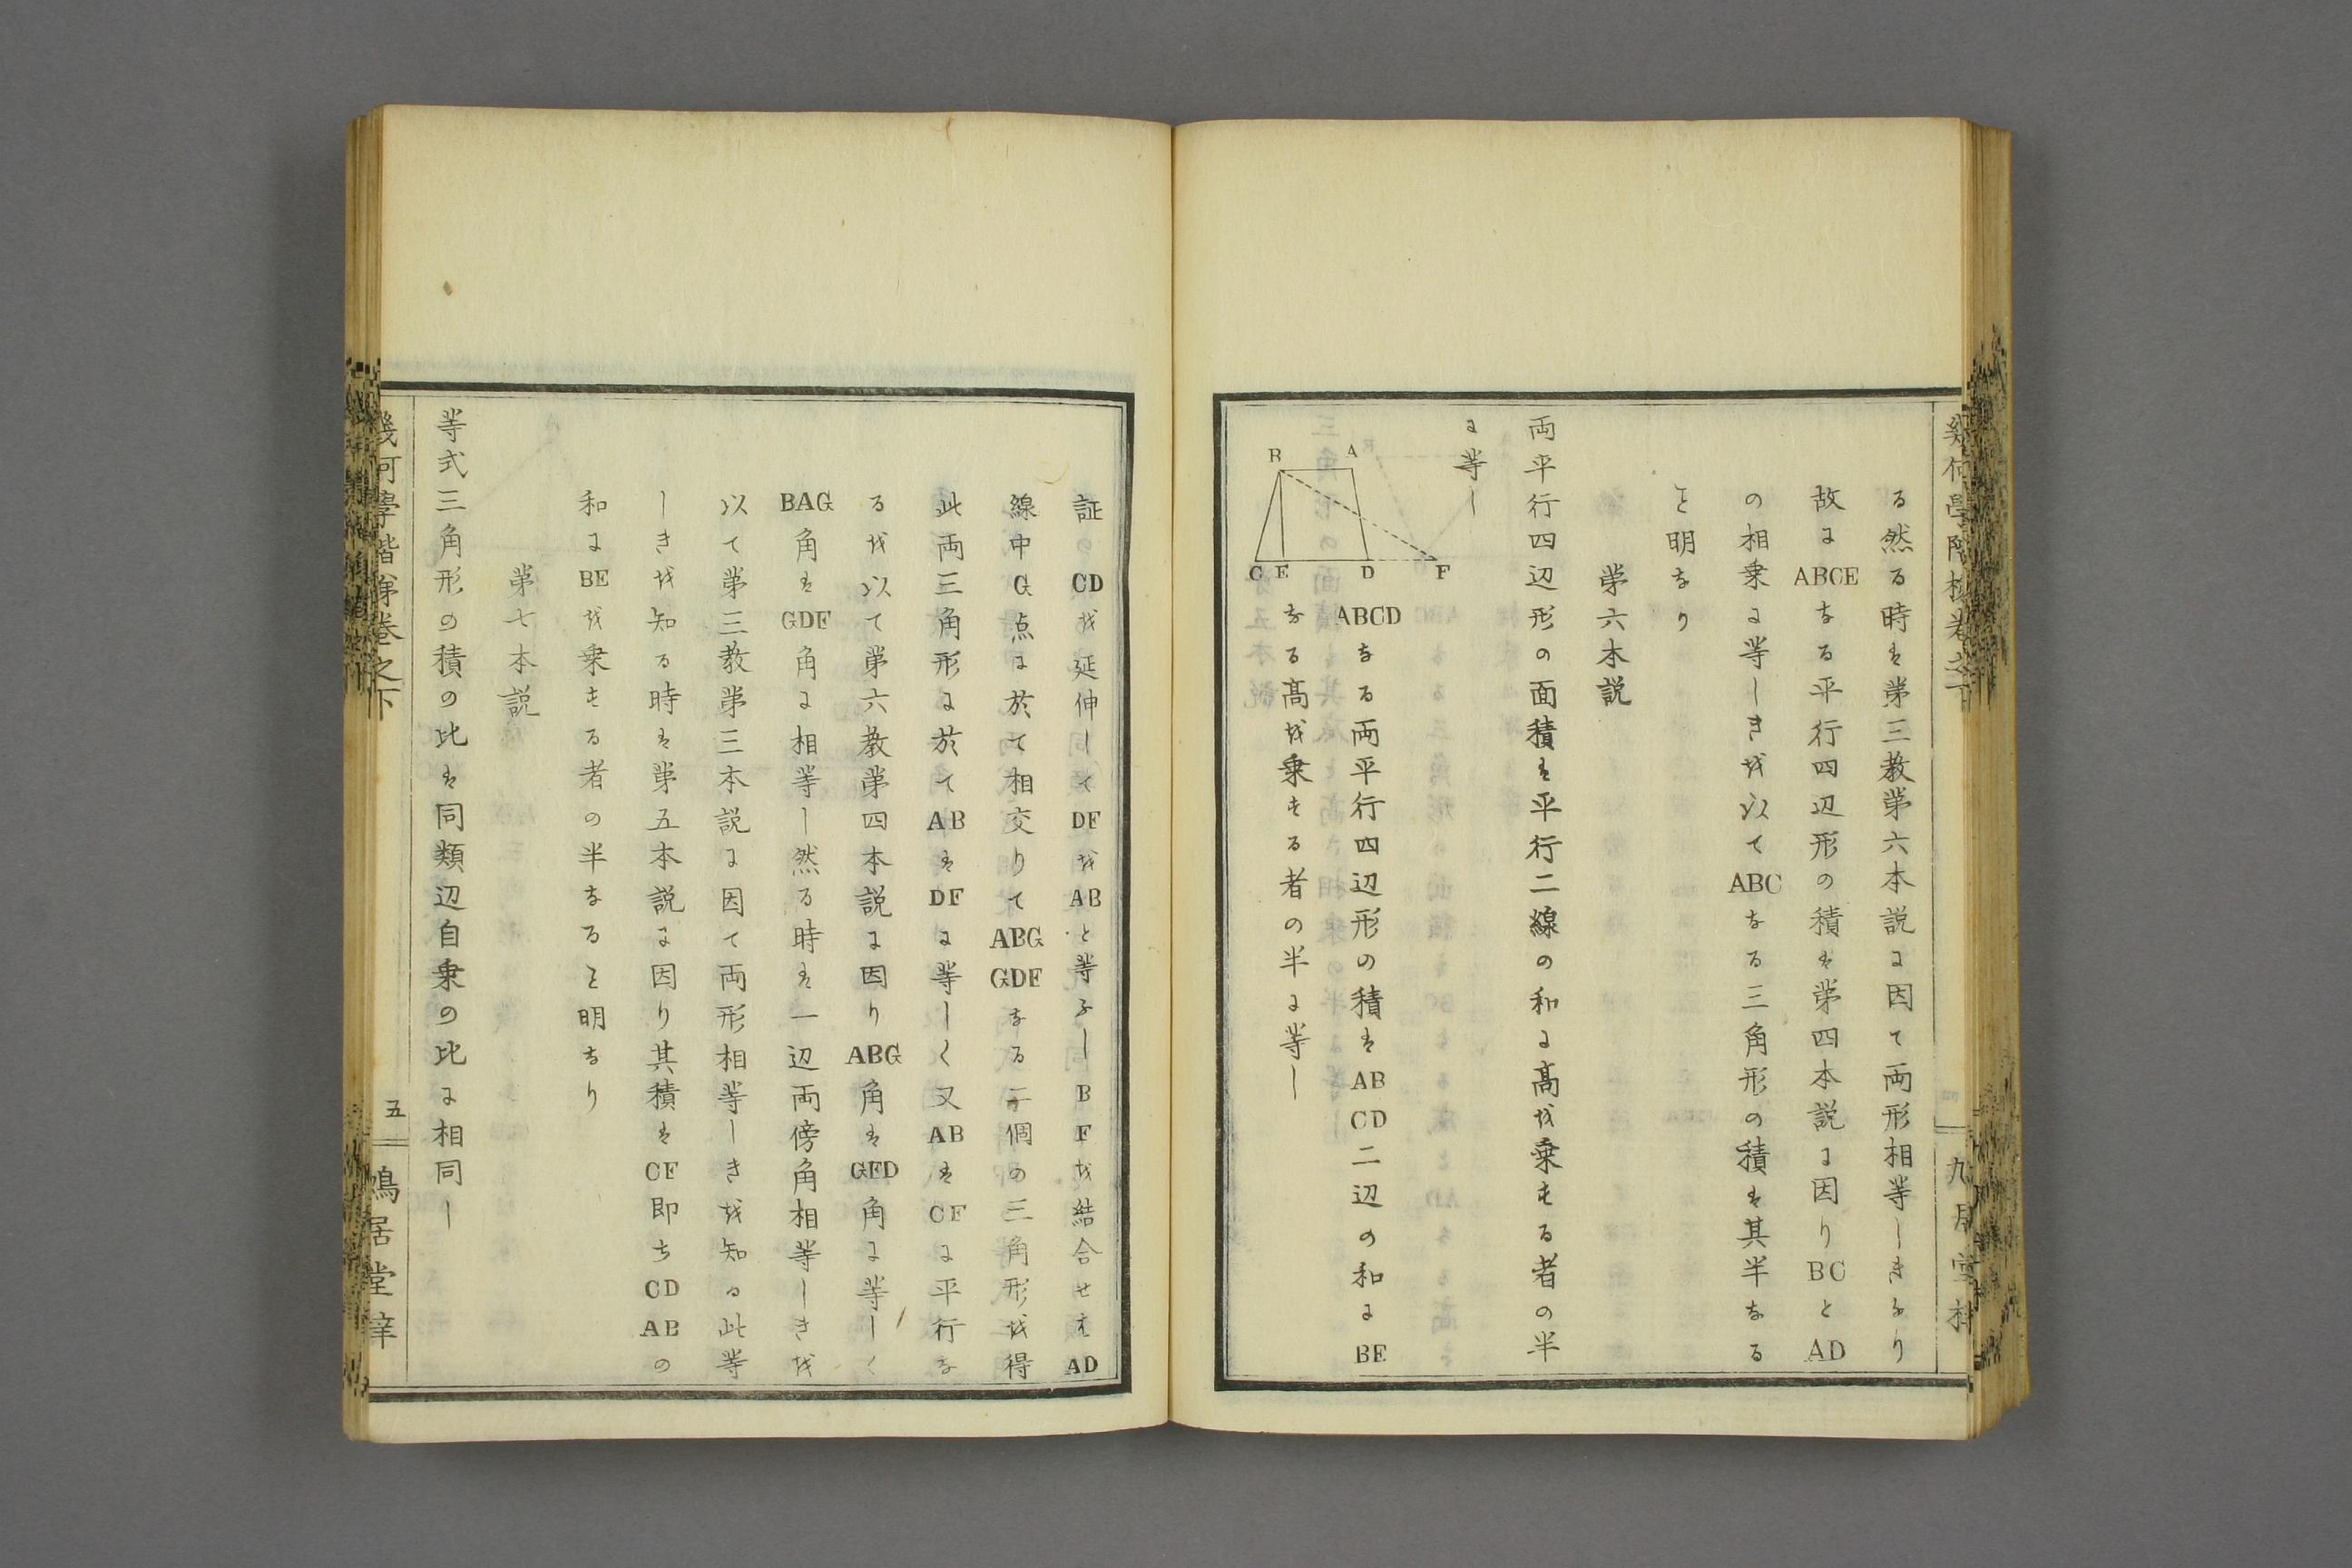 る然る時は第三教第六本説に因て両形相等しきなり
故にABCEなる平行四辺形の積は第四本説に因りBCとAD
の相乗に等しきを以てABCなる三角形の積は其半なる
こと明なり
第六本説
両平行四辺形の面積は平行二線の和に高を乗する者の半
に等し
A
B
C
E
D
F
ABCDなる両平行四辺形の積はAB CD二辺の和にBE
なる高を乗する者の半に等し
証CDを延伸してDFをABと等ふしBFを結合せはAD
線中G点に於て相交りてABG GDFなる二個の三角形を得
此両三角形に於てABはDFに等しく又ABはCFに平行な
るを以て第六教第四本説に因りABG角はGFD角に等しく
BAG角はGDF角に相等し然る時は一辺両傍角相等しきを
以て第三教第三本説に因て両形相等しきを知る此等
しきを知る時は第五本説に因り其積はCF即ちCD ABの
和にBEを乗する者の半なること明なり
第七本説
等式三角形の積の比は同類辺自乗の比に相同し
幾何學階梯卷之下
五
鳩居堂梓